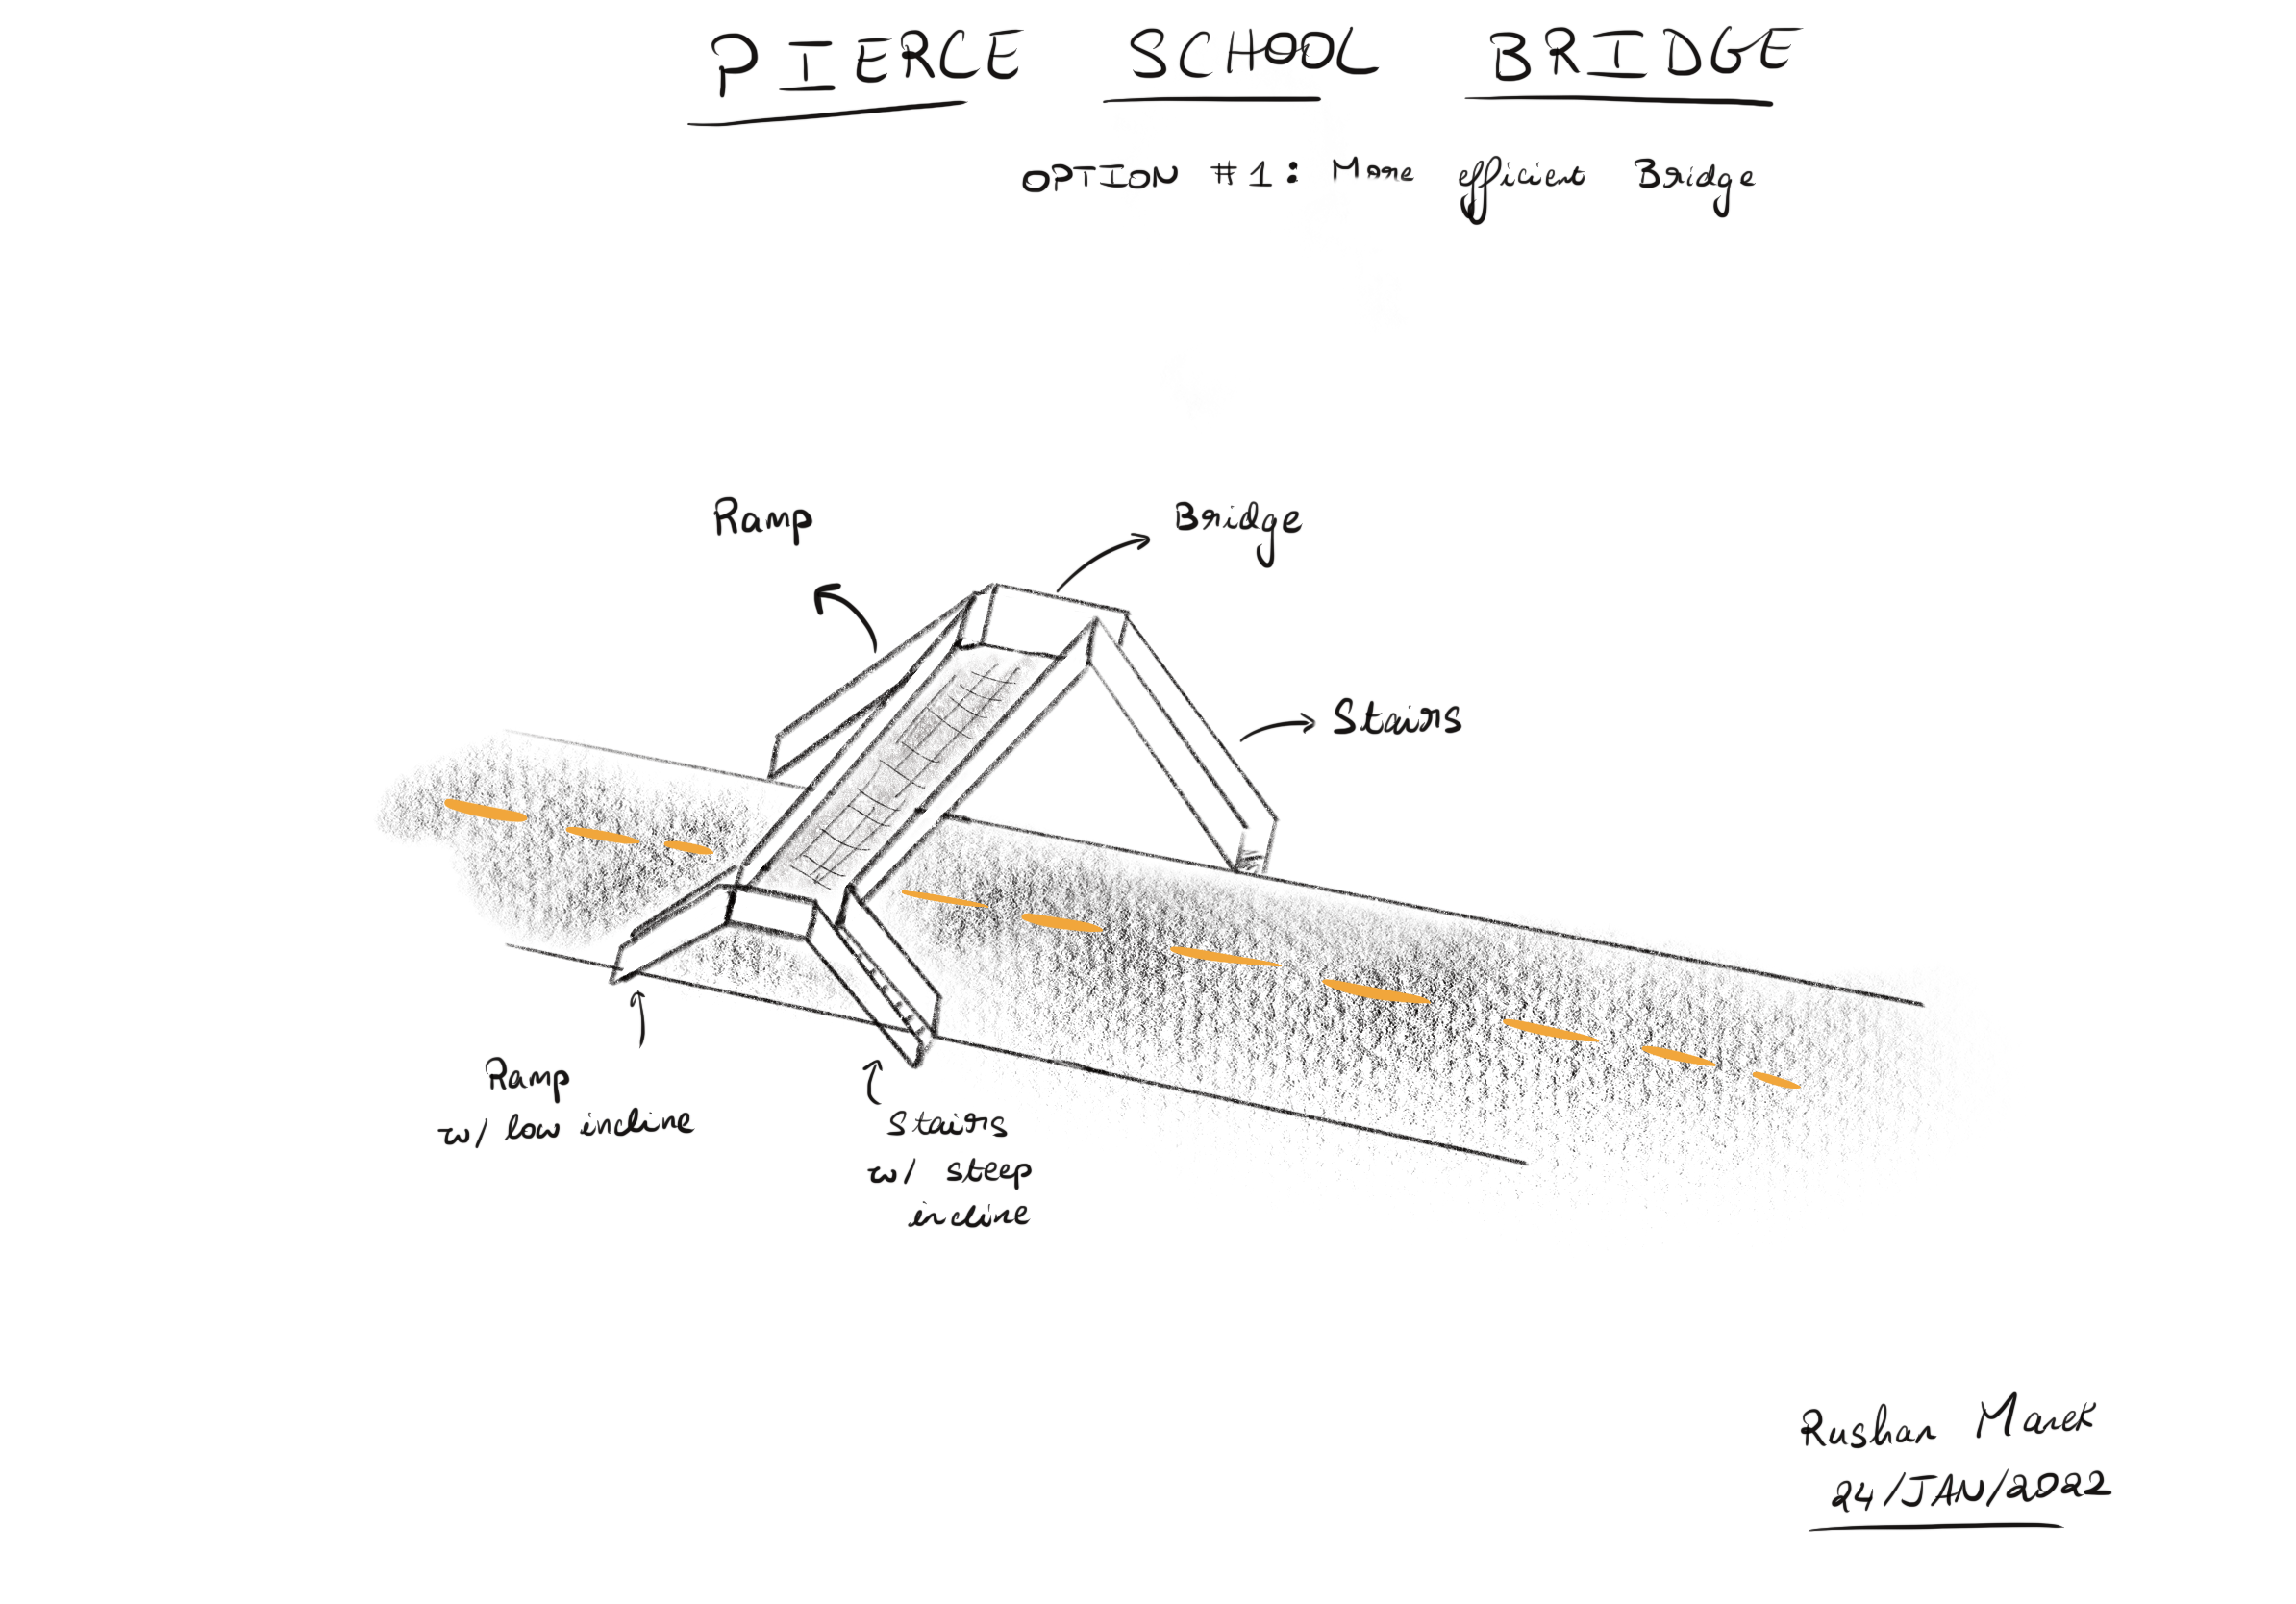 PIERCE SCHOOL BRIDGE
OPTION #1: More efficient Bridge
Ramp
Bridge
Stairs
Ramp
w/ low incline
Stairs
w/ steep
incline
Rushan Marek
24/JAN/2022